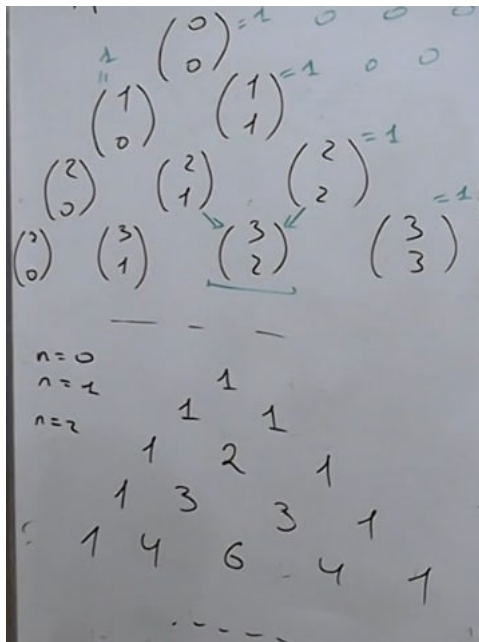 (0 0) = 1 0 0 0
1 = (1 0) (1 1) = 1 0 0
(2 0) (2 1) (2 2) = 1
(3 0) (3 1) (3 2) (3 3) = 1
n=0
n=1 1
1 1
n=2
1 2 1
1 3 3 1
1 4 6 4 1